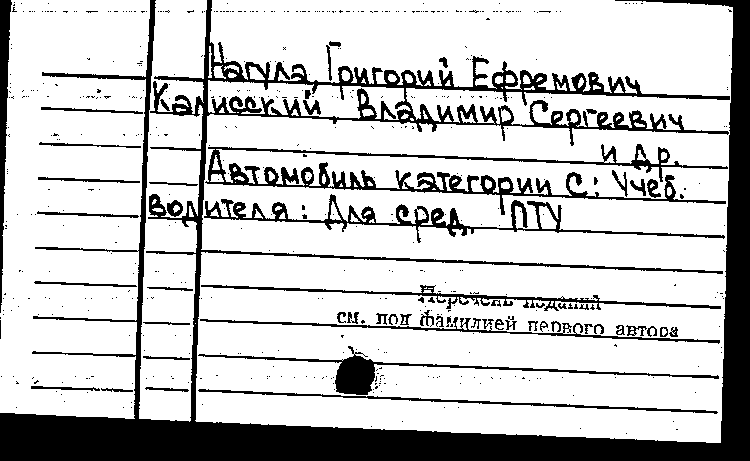 Нагула, Григорий Ефремович
Калисский, Владимир Сергеевич
и др.
Автомобиль категории С: Учеб.
водителя: Для сред. ПТУ
Перечень изданий
см. под фамилией первого автора